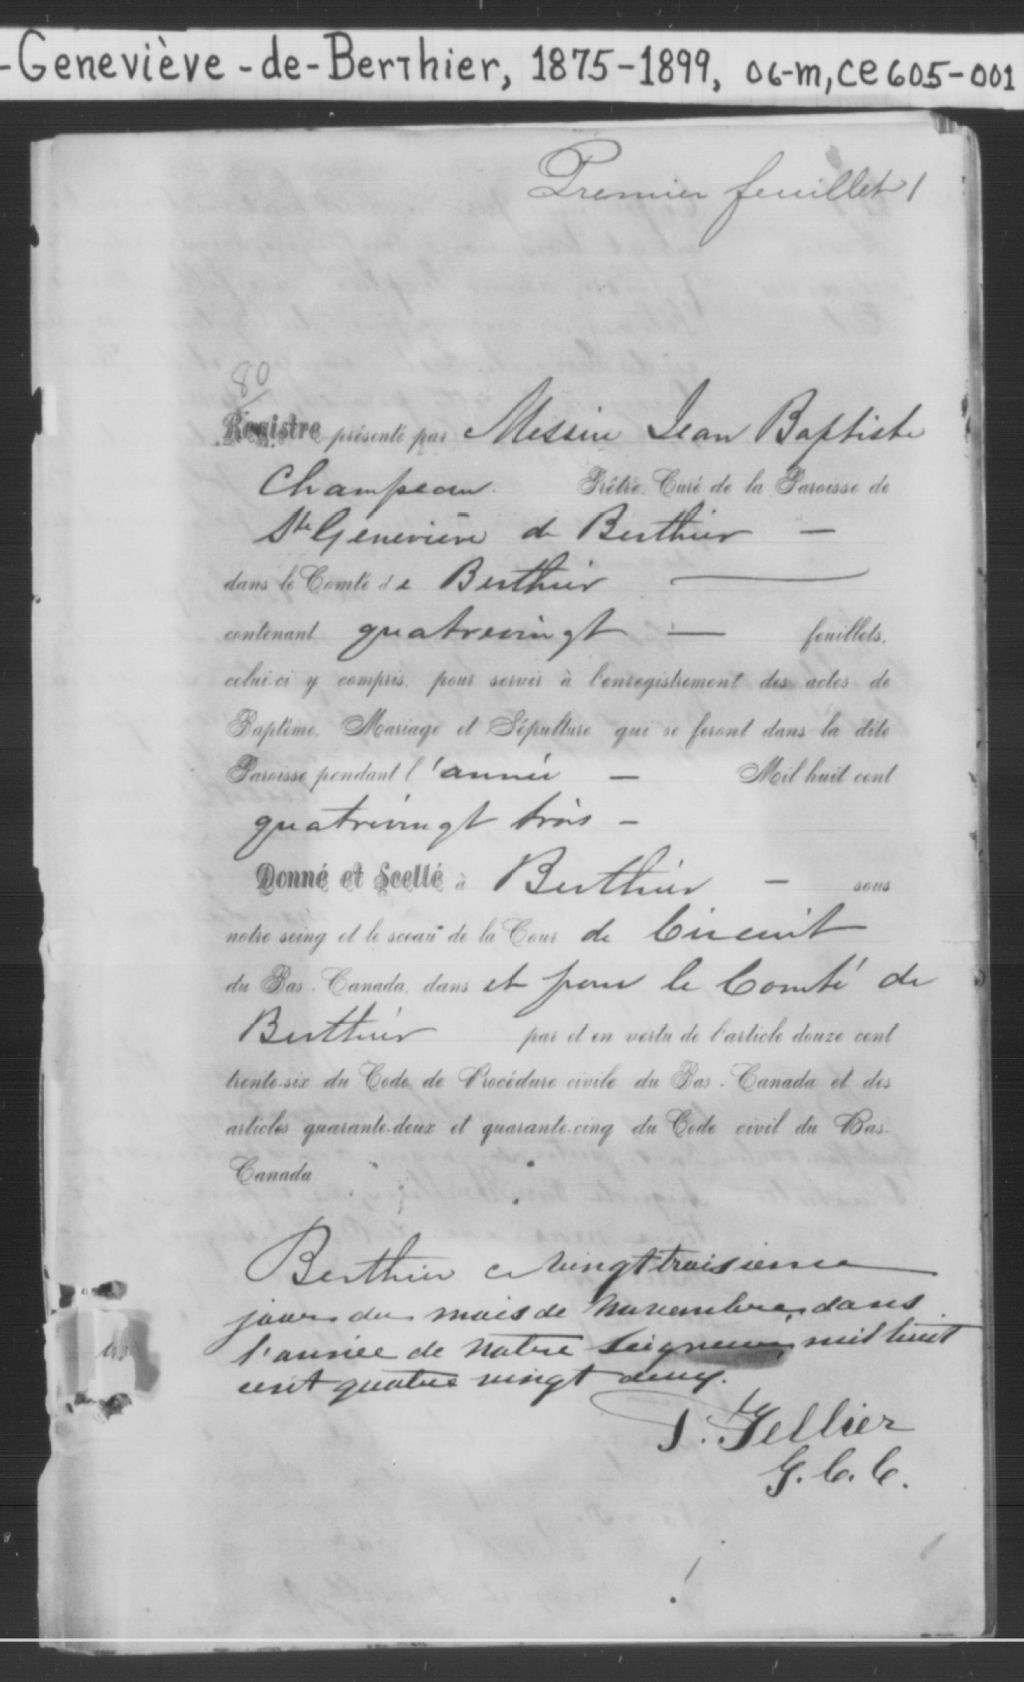 -Geneviève-de-Berthier, 1875-1899, 06-m, ce605-001
Premier feuillet 1
80
Registre présenté par Messire Jean Baptiste
Champeau Prêtre, Curé de la Paroisse de
Ste Geneviève de Berthier —
dans le Comté de Berthier —
contenant quatrevingt — feuillets,
celui-ci y compris, pour servir à l'enregistrement des actes de
Baptême, Mariage et Sépulture qui se feront dans la dite
Paroisse pendant l'année — Mil huit cent
quatrevingt trois —
Donné et Scellé à Berthier — sous
notre seing et le sceau de la Cour de Circuit
du Bas-Canada, dans et pour le Comté de
Berthier par et en vertu de l'article douze cent
trente-six du Code de Procédure civile du Bas-Canada et des
articles quarante-deux et quarante-cinq du Code civil du Bas-
Canada
Berthier ce vingt troisieme
jour du mois de Novembre, dans
l'année de Notre Seigneur, mil huit
cent quatre vingt deux.
Tellier
G. C. C.